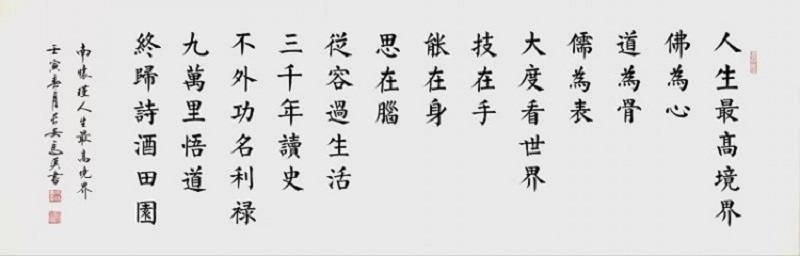 人生最高境界
佛為心
道為骨
儒為表
大度看世界
技在手
能在身
思在腦
從容過生活
三千年讀史
不外功名利禄
九萬里悟道
終歸詩酒田園
南懷瑾人生最高境界
壬寅春月書